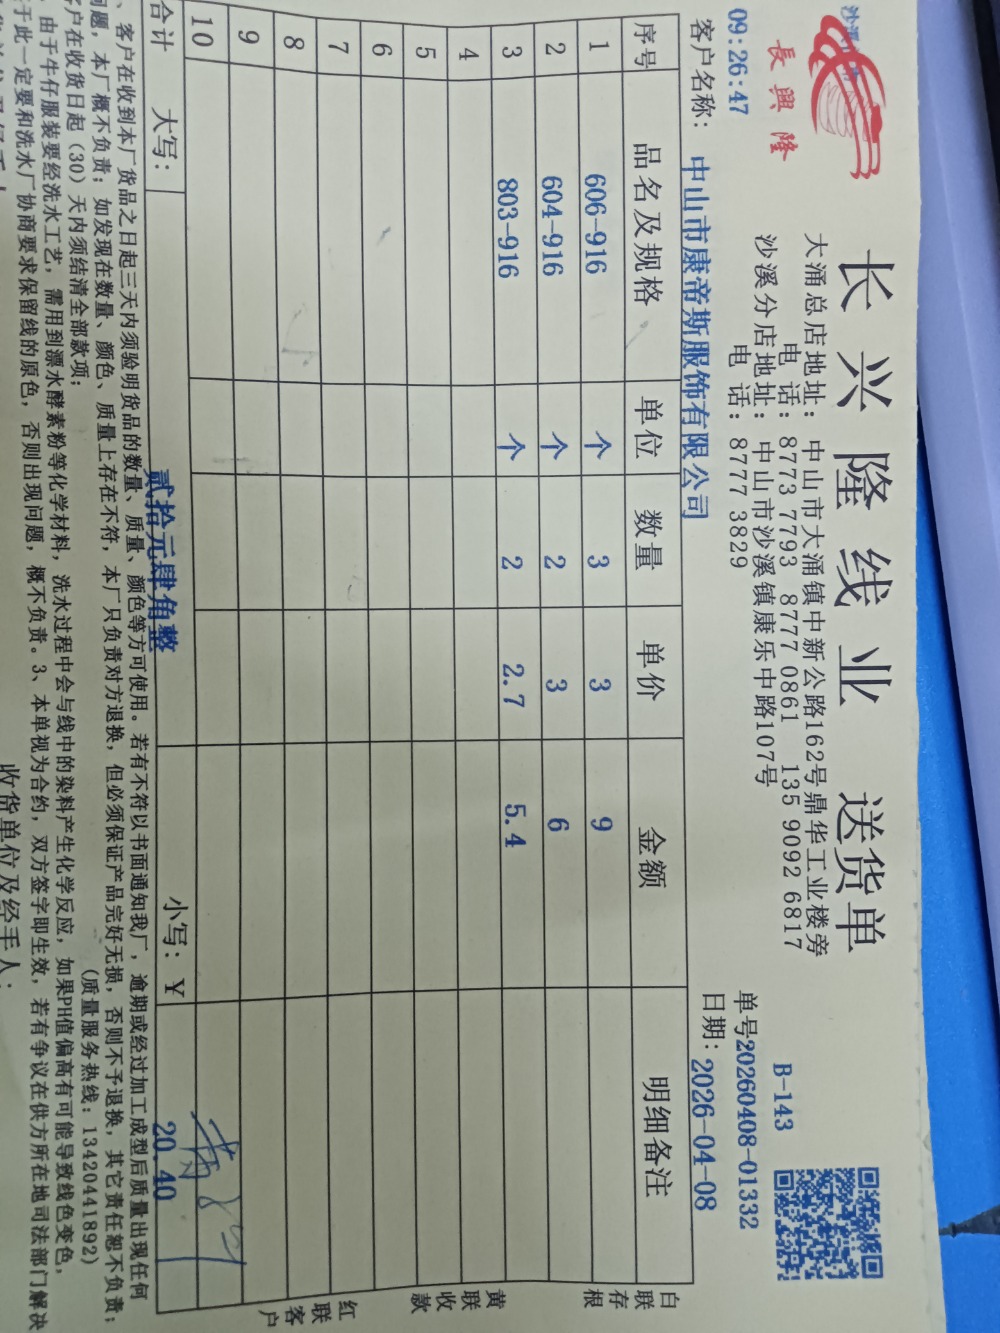 長興隆
长兴隆线业 送货单
大涌总店地址：中山市大涌镇中新公路162号鼎华工业楼旁
电 话：8773 7793 8777 0861 135 9092 6817
沙溪分店地址：中山市沙溪镇康乐中路107号
电 话：8777 3829
B-143
单号20260408-01332
09:26:47
客户名称：中山市康帝斯服饰有限公司
日期：2026-04-08
序号 品名及规格 单位 数量 单价 金额 明细备注
1 606-916 个 3 3 9
2 604-916 个 2 3 6
3 803-916 个 2 2.7 5.4
4
5
6
7
8
9
10
合计 大写：贰拾元肆角整 小写：￥ 20.40
白联存根
黄联收款
红联客户
、客户在收到本厂货品之日起三天内须验明货品的数量、质量、颜色等方可使用。若有不符以书面通知我厂，逾期或经过加工成型后质量出现任何
问题，本厂概不负责；如发现在数量、颜色、质量上存在不符，本厂只负责对方退换，但必须保证产品完好无损，否则不予退换，其它责任恕不负责；
客户在收货日起（30）天内须结清全部款项； （质量服务热线：13420441892）
由于牛仔服装要经洗水工艺，需用到漂水酵素粉等化学材料，洗水过程中会与线中的染料产生化学反应，如果PH值偏高有可能导致线色变色，
于此一定要和洗水厂协商要求保留线的原色，否则出现问题，概不负责。3、本单视为合约，双方签字即生效，若有争议在供方所在地司法部门解决
收货单位及经手人：